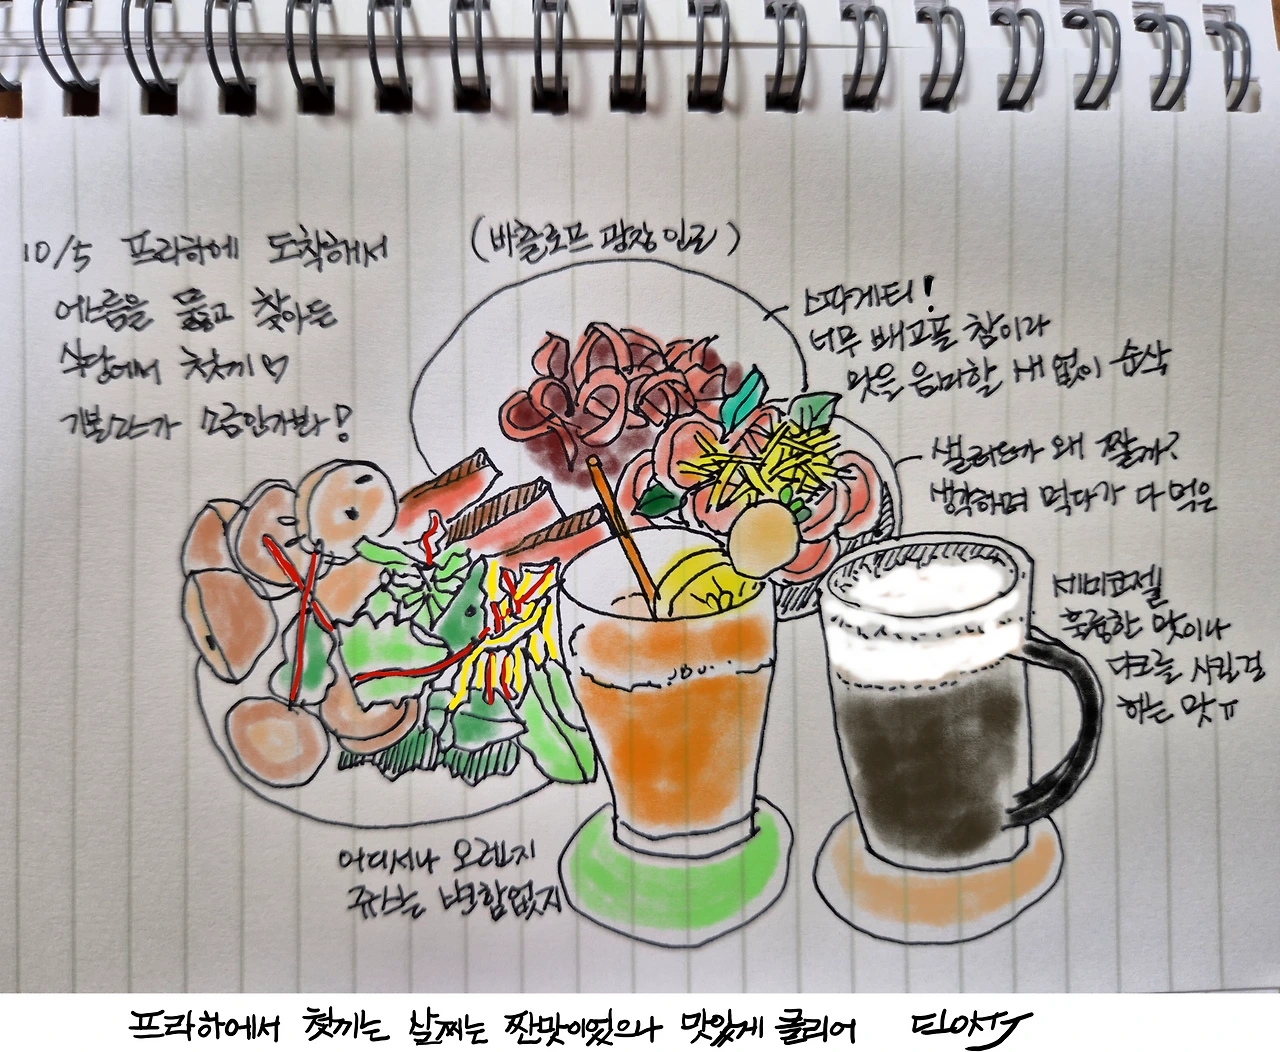 (바츨로프 광장 인근)
10/5 프라하에 도착해서
어스름을 뚫고 찾아든
식당에서 첫끼♡
기본소스가 소금인가봐!
스파게티!
너무 배고플 참이라
맛을 음미할 새 없이 순삭
샐러드가 왜 짤까?
생각하며 먹다가 다 먹은
세미코젤
훌륭한 맛이나
다크를 시킬걸
하는 맛ㅠ
어디서나 오렌지
쥬스는 변함없지
프라하에서 첫끼는 살짜는 짠맛이었으나 맛있게 클리어